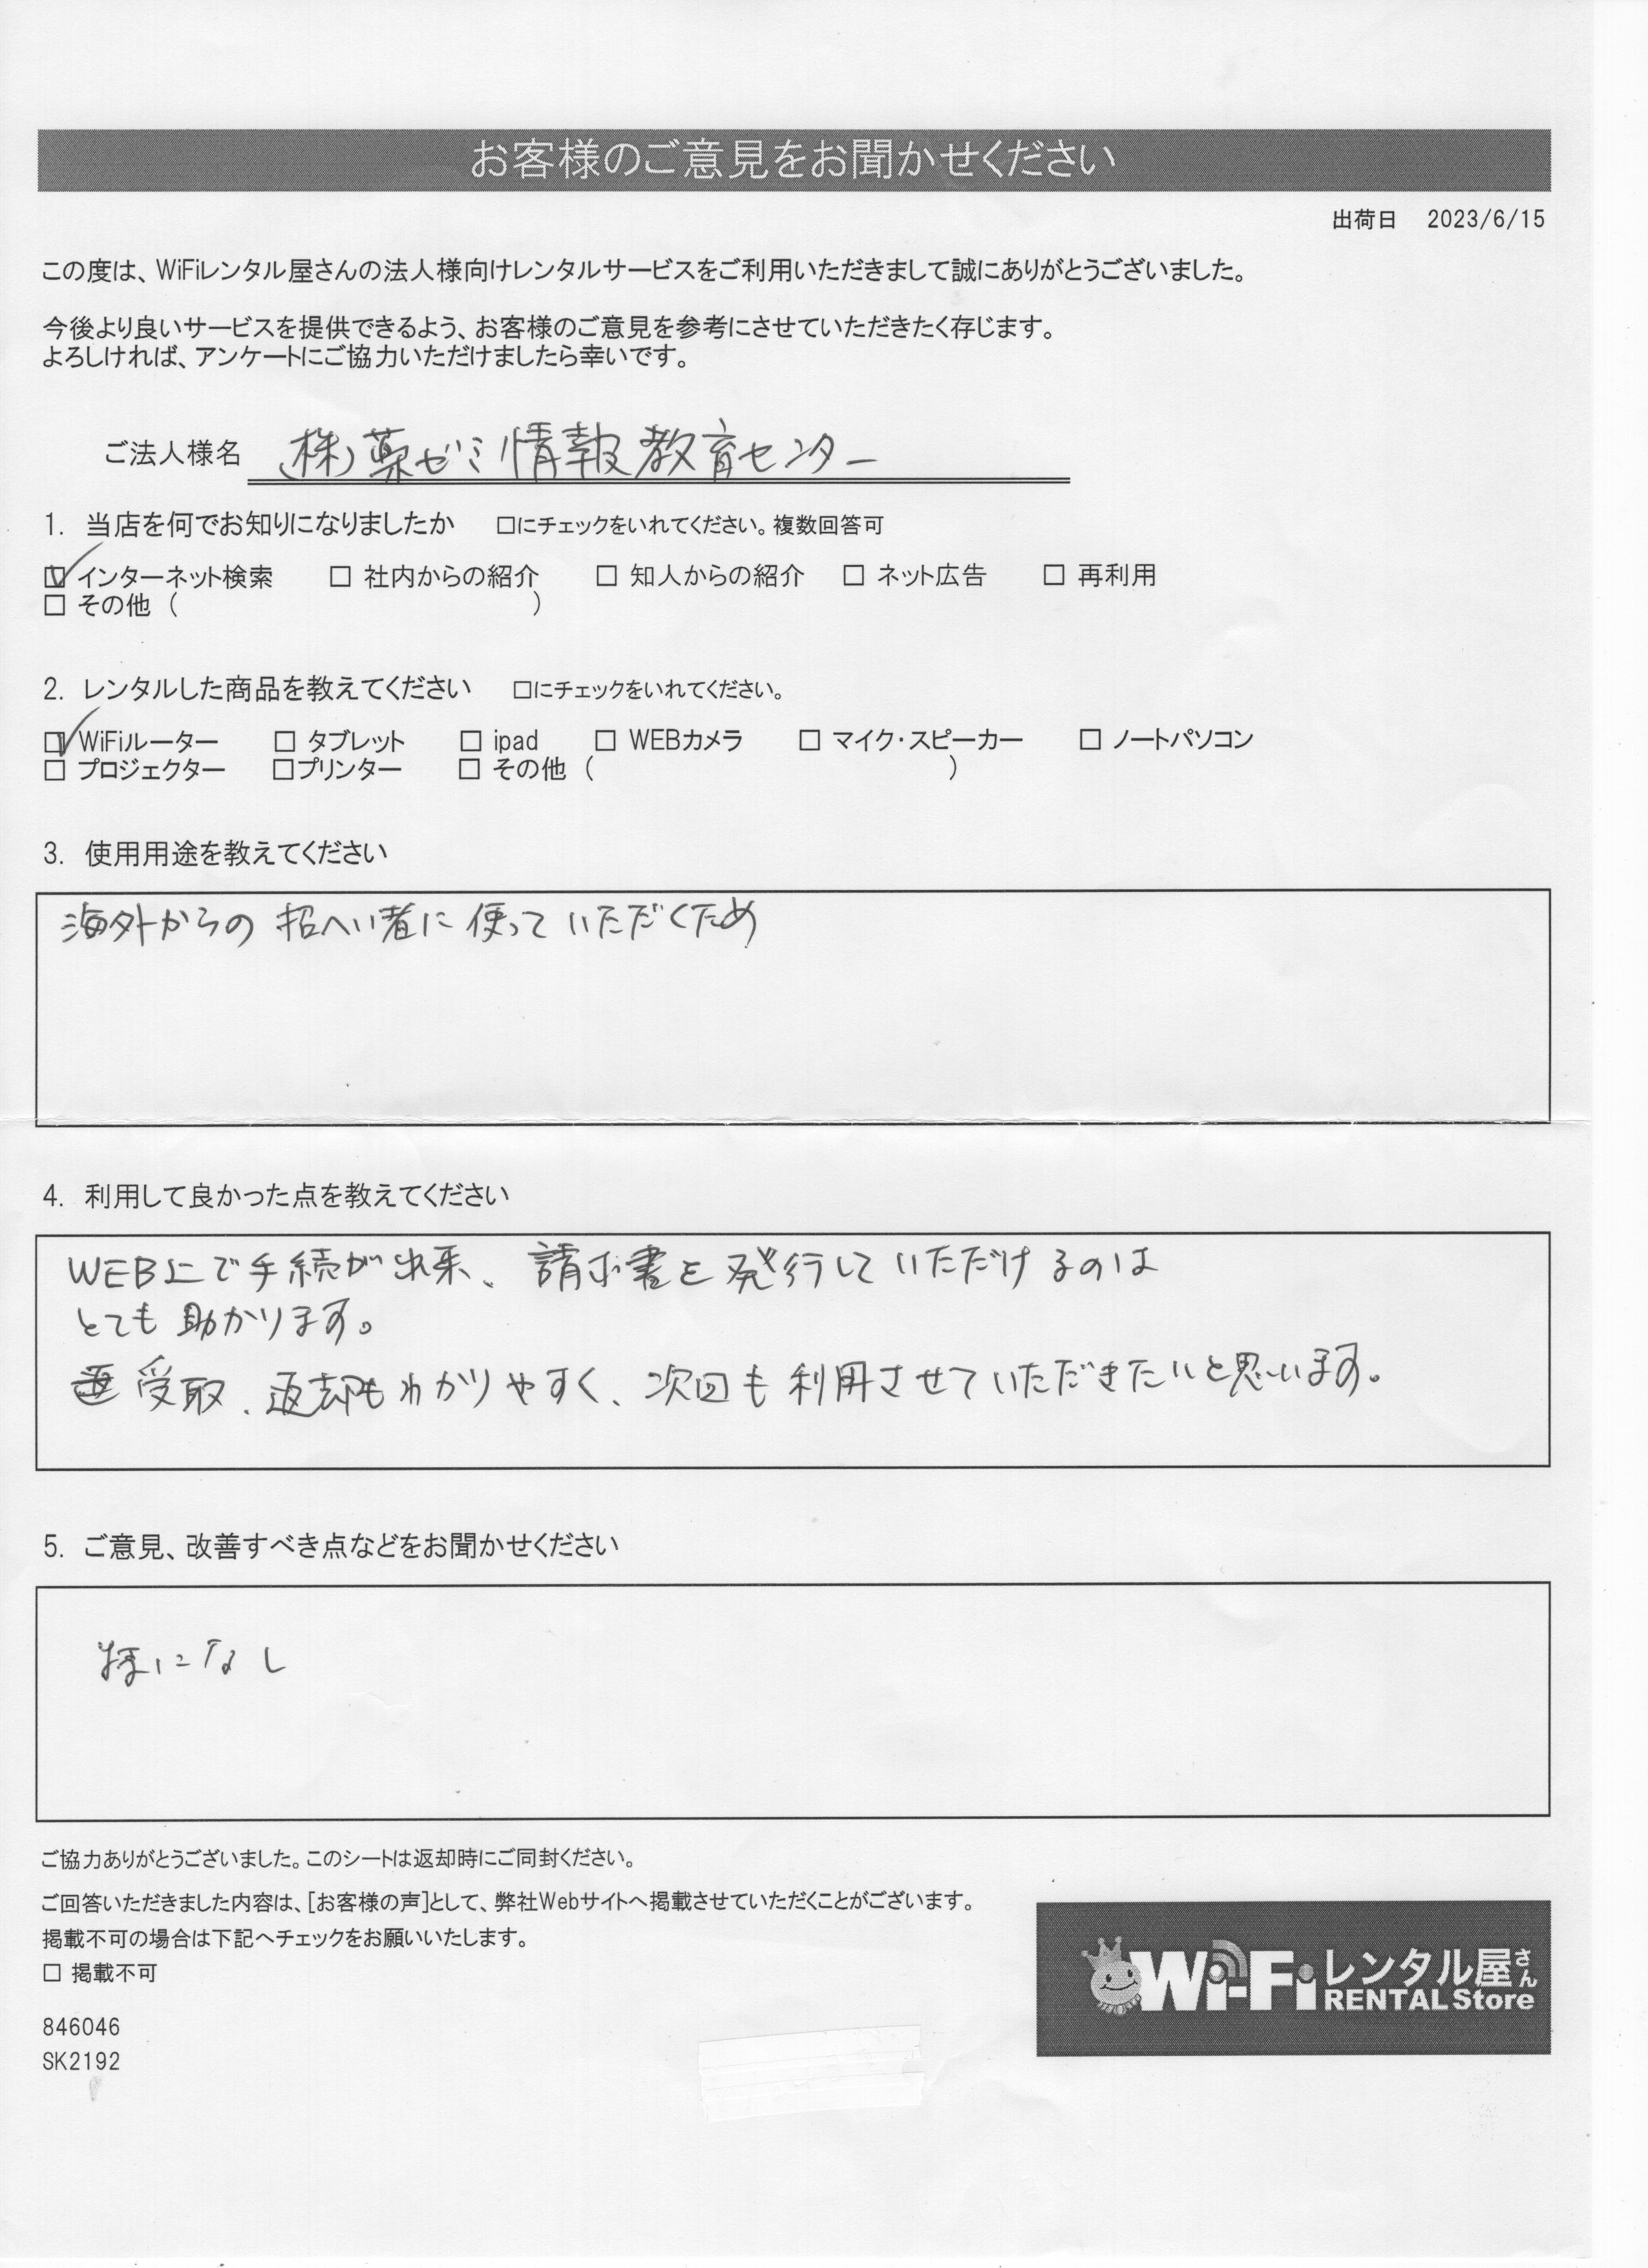 お客様のご意見をお聞かせください
出荷日 2023/6/15
この度は、WiFiレンタル屋さんの法人様向けレンタルサービスをご利用いただきまして誠にありがとうございました。
今後より良いサービスを提供できるよう、お客様のご意見を参考にさせていただきたく存じます。
よろしければ、アンケートにご協力いただけましたら幸いです。
ご法人様名 (株)薬ゼミ情報教育センター
1. 当店を何でお知りになりましたか □にチェックをいれてください。複数回答可
☑ インターネット検索 □ 社内からの紹介 □ 知人からの紹介 □ ネット広告 □ 再利用
□ その他 ( )
2. レンタルした商品を教えてください □にチェックをいれてください。
☑ WiFiルーター □ タブレット □ ipad □ WEBカメラ □ マイク・スピーカー □ ノートパソコン
□ プロジェクター □プリンター □ その他 ( )
3. 使用用途を教えてください
海外からの招へい者に使っていただくため
4. 利用して良かった点を教えてください
WEB上で手続が出来、請求書を発行していただけるのは
とても助かります。
受取、返却もわかりやすく、次回も利用させていただきたいと思います。
5. ご意見、改善すべき点などをお聞かせください
様になし
ご協力ありがとうございました。このシートは返却時にご同封ください。
ご回答いただきました内容は、[お客様の声]として、弊社Webサイトへ掲載させていただくことがございます。
掲載不可の場合は下記へチェックをお願いいたします。
□ 掲載不可
846046
SK2192
Wi-Fiレンタル屋さん
RENTAL Store